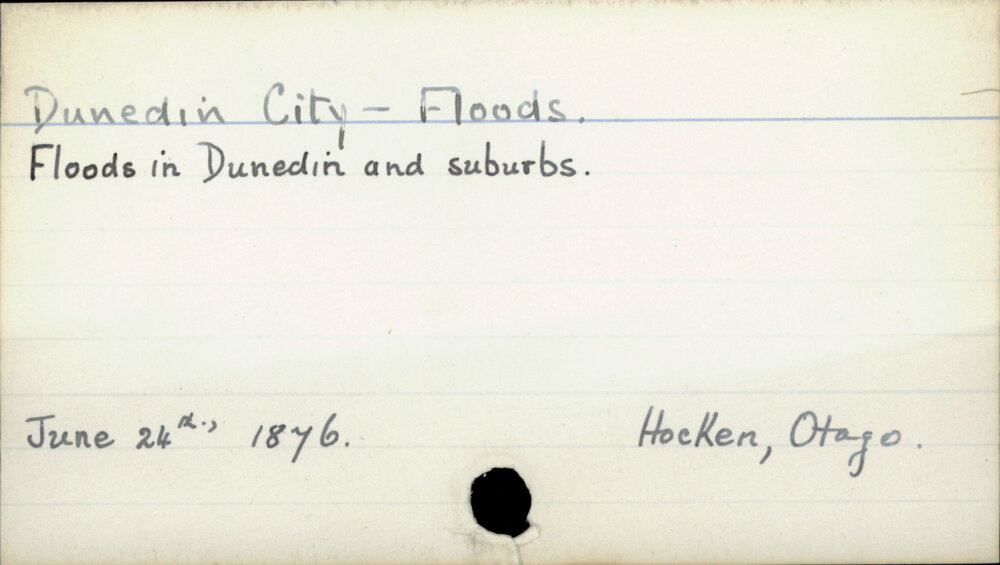 Dunedin City - Floods.
Floods in Dunedin and suburbs.
June 24th., 1876. Hocken, Otago.